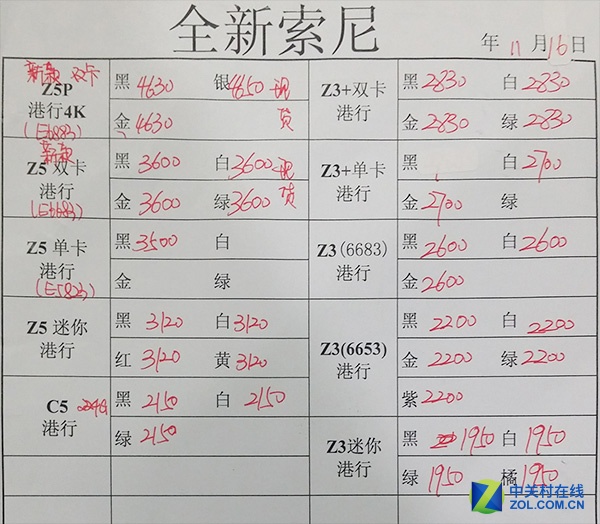 全新索尼
年 11 月 16 日
新款 双卡
Z5P
港行4K
(E6883)
黑 4630 银 4650 现
金 4630 货
Z3+双卡
港行
黑 2830 白 2830
金 2830 绿 2830
新款
Z5 双卡
港行
(E6683)
黑 3600 白 3600 现
金 3600 绿 3600 货
Z3+单卡
港行
黑 白 2700
金 2700 绿
Z5 单卡
港行
(E5823)
黑 3500 白
金 绿
Z3 (6683)
港行
黑 2600 白 2600
金 2600
Z5 迷你
港行
黑 3120 白 3120
红 3120 黄 3120
Z3(6653)
港行
黑 2200 白 2200
金 2200 绿 2200
紫 2200
C5 4G
港行
黑 2150 白 2150
绿 2150
Z3迷你
港行
黑 1950 白 1950
绿 1950 橘 1950
Z 中关村在线
ZOL.COM.CN